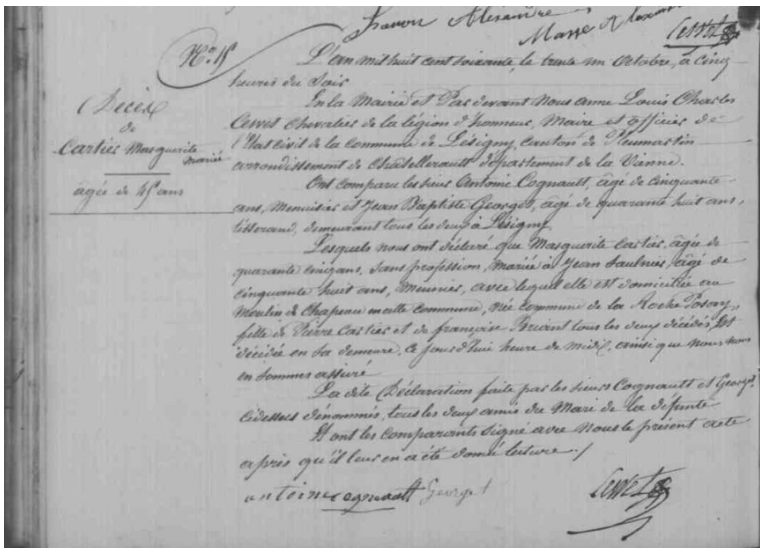 Alexandre
Masse
Cesvet
N° 15
L'an mil huit cent soixante, le trente un Octobre, à cinq
heures du Soir
Décès
de
Cartier Marguerite
mariée
âgée de 45 ans
En la Mairie et Par devant Nous anne Louis Charles
Cesvet Chevalier de la légion d'honneur, Maire et officier de
l'Etat civil de la Commune de Lésigny, canton de Pleumartin
arrondissement de Chatellerault département de la Vienne.
Ont comparu les sieurs Antoine Cognault, âgé de cinquante
ans, Menuisier et Jean Baptiste Georget, âgé de quarante huit ans,
tisserand, demeurant tous les deux à Lésigny
Lesquels nous ont déclaré que Marguerite Cartier, âgée de
quarante cinq ans, sans profession, mariée à Jean Saulnier, âgé de
cinquante huit ans, Meunier, avec lequel elle est domiciliée au
Moulin de Chapeau en cette commune, née commune de la Roche Posay,
fille de Pierre Cartier et de françoise Briant tous les deux décédés, Est
décédée en sa demeure, ce jour d'hui heure de midi, ainsi que nous nous
en sommes assuré
La dite Déclaration faite par les sieurs Cognault et Georget
cidessus dénommés, tous les deux amis du Mari de la défunte
Et ont les comparants signé avec Nous le présent acte
après qu'il leur en a été donné lecture ./
antoine cognault Georget
Cesvet